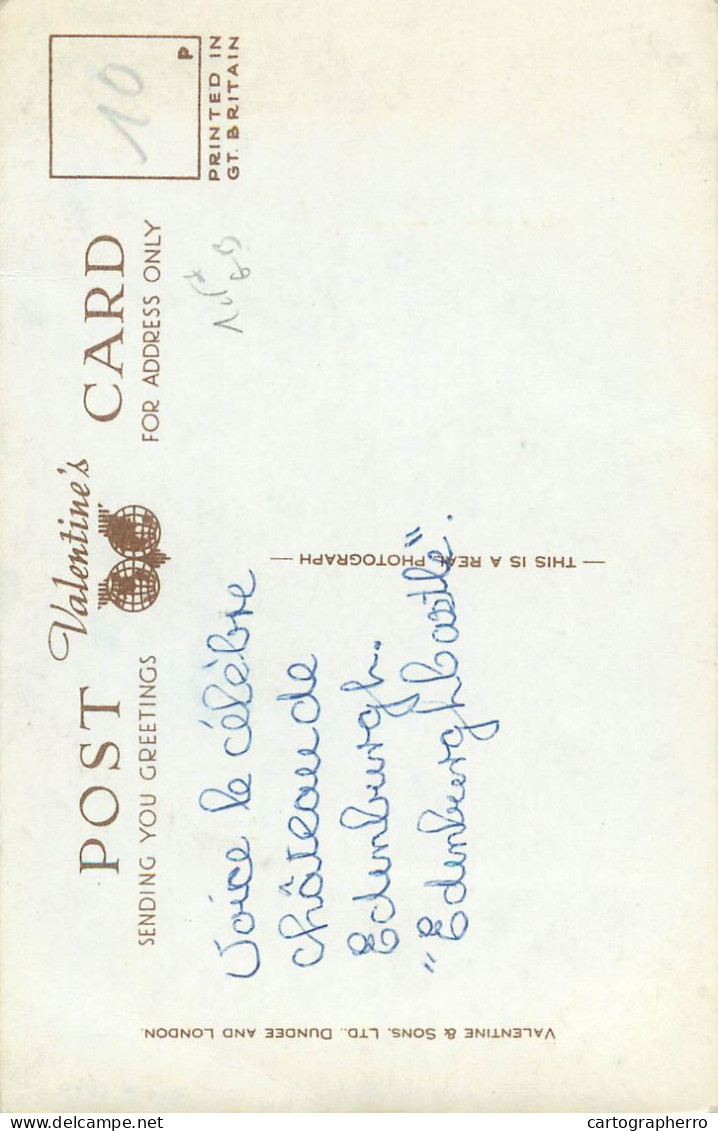 POST Valentine's CARD
SENDING YOU GREETINGS
FOR ADDRESS ONLY
P
PRINTED IN
GT. BRITAIN
10
Voice le célèbre
château de
Edenburgh.
"Edenburgh Castle".
— THIS IS A REAL PHOTOGRAPH —
VALENTINE & SONS, LTD., DUNDEE AND LONDON.
cartographerro